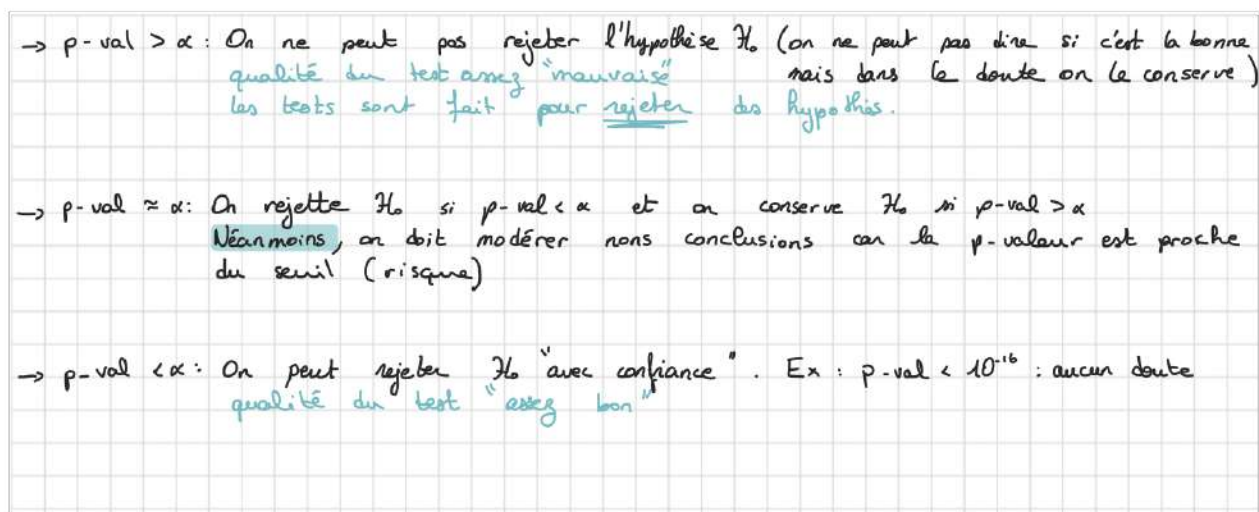 → p-val > α : On ne peut pas rejeter l'hypothèse H₀ (on ne peut pas dire si c'est la bonne
qualité du test assez "mauvaise" mais dans le doute on le conserve)
les tests sont fait pour rejeter des hypothès.
→ p-val ≈ α : On rejette H₀ si p-val < α et on conserve H₀ si p-val > α
Néanmoins, on doit modérer nons conclusions car la p-valeur est proche
du seuil (risque)
→ p-val < α : On peut rejeter H₀ "avec confiance". Ex : p-val < 10⁻¹⁶ : aucun doute
qualité du test "assez bon"